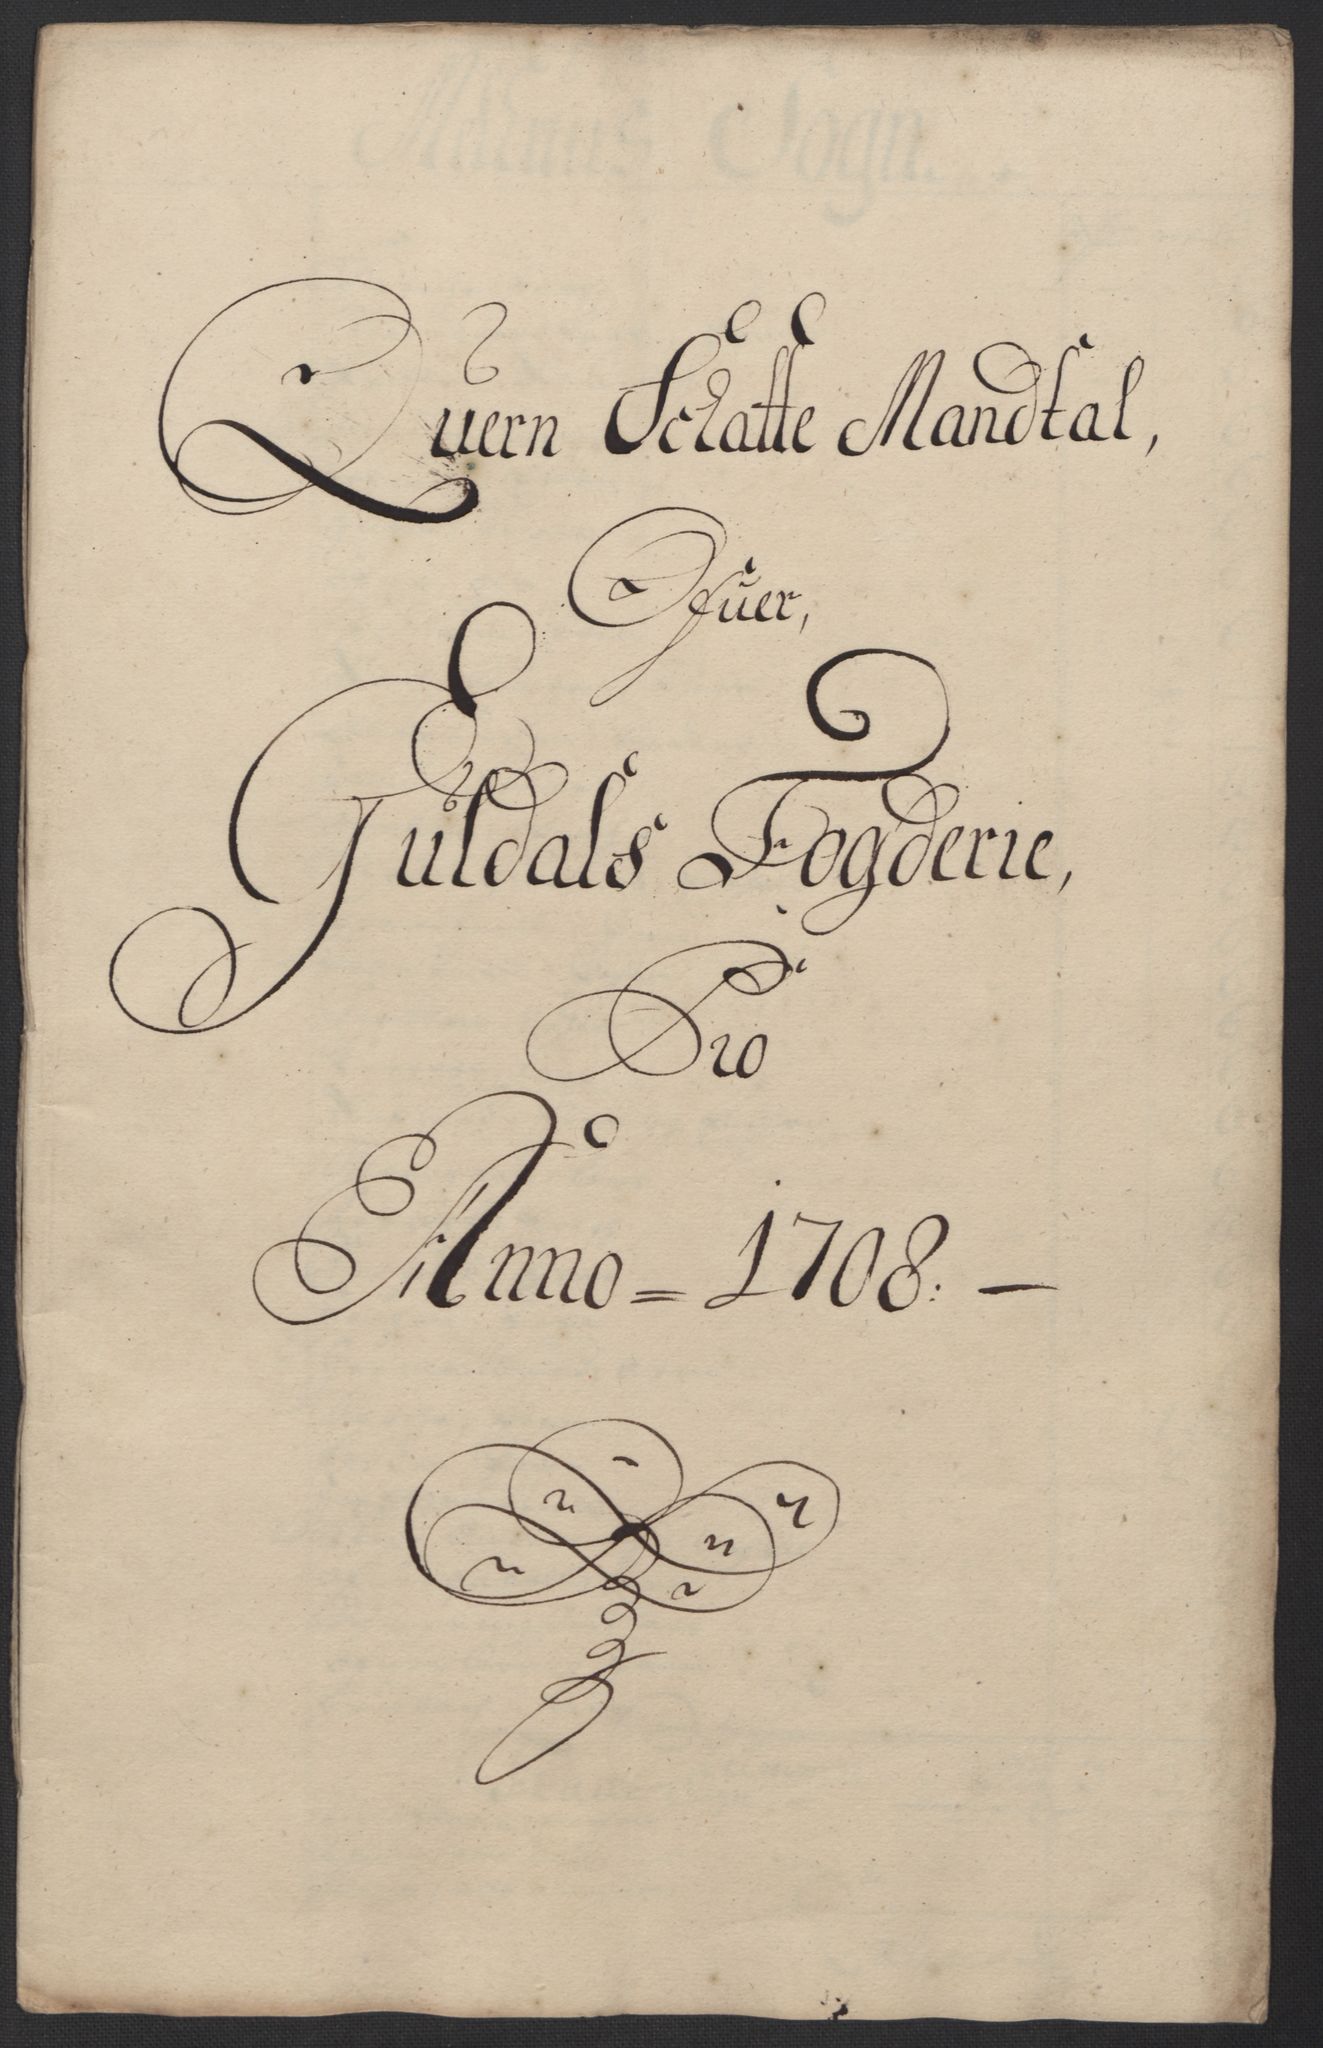 Quern Schatte Mandtal,
Ofuer,
Guldals Fogderie,
Pro
Anno = 1708. —